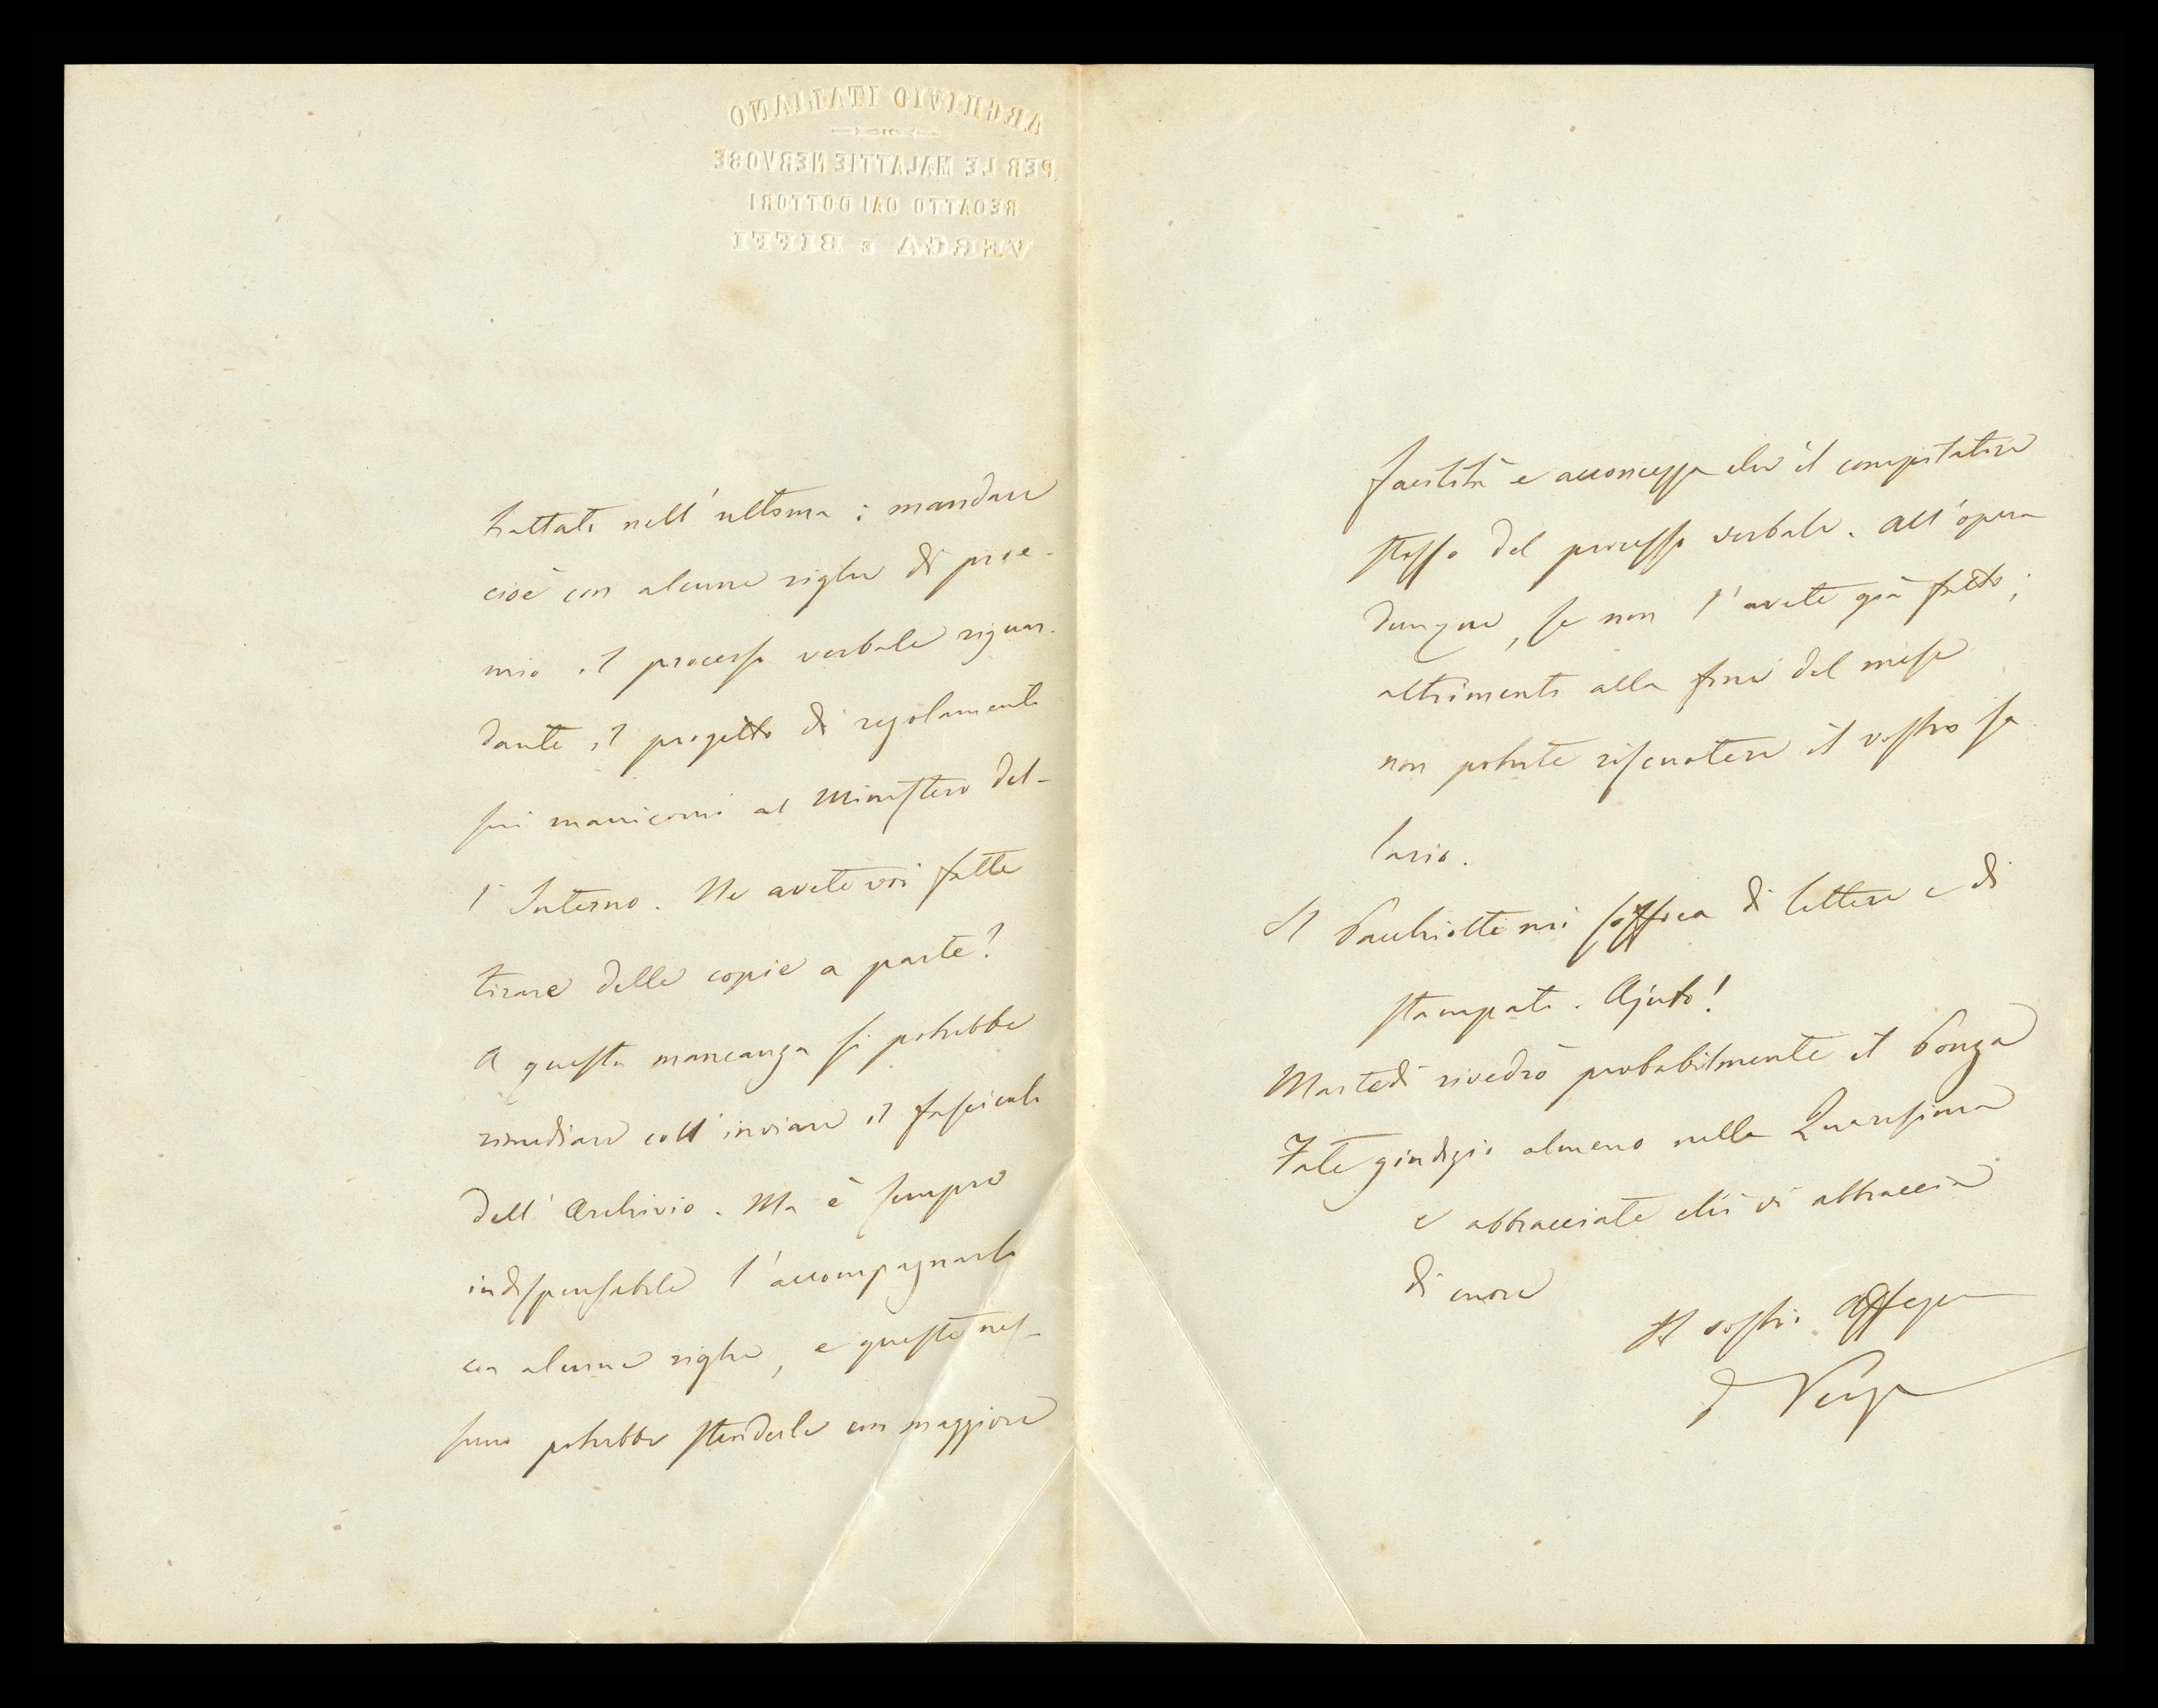 ARCHIVIO ITALIANO
PER LE MALATTIE NERVOSE
REDATTO DAI DOTTORI
VERGA E BIFFI
trattati nell'ultima: mandare
cioè con alcune righe di proe-
mio il processo verbale riguar-
dante il progetto di regolamento
sui manicomi al Ministero del-
l'Interno. Ne avete voi fatte
tirare delle copie a parte?
A questa mancanza si potrebbe
rimediare coll'inviare il fascicolo
dell'Archivio. Ma è sempre
indispensabile l'accompagnarlo
con alcune righe, e queste nes-
suno potrebbe stenderle con maggiore
facilità e acconcezza che il compilatore
stesso del processo verbale. All'opera
dunque, se non l'avete già fatto;
altrimenti alla fine del mese
non potrete riscuotere il vostro sa
lario.
Il Pacchiotti mi soffoca di lettere e di
stampati. Ajuto!
Martedì rivedrò probabilmente il Bonza
Fate giudizio almeno nella Quaresima
e abbracciate chi vi abbraccia
di cuore
Il vostro
Verga